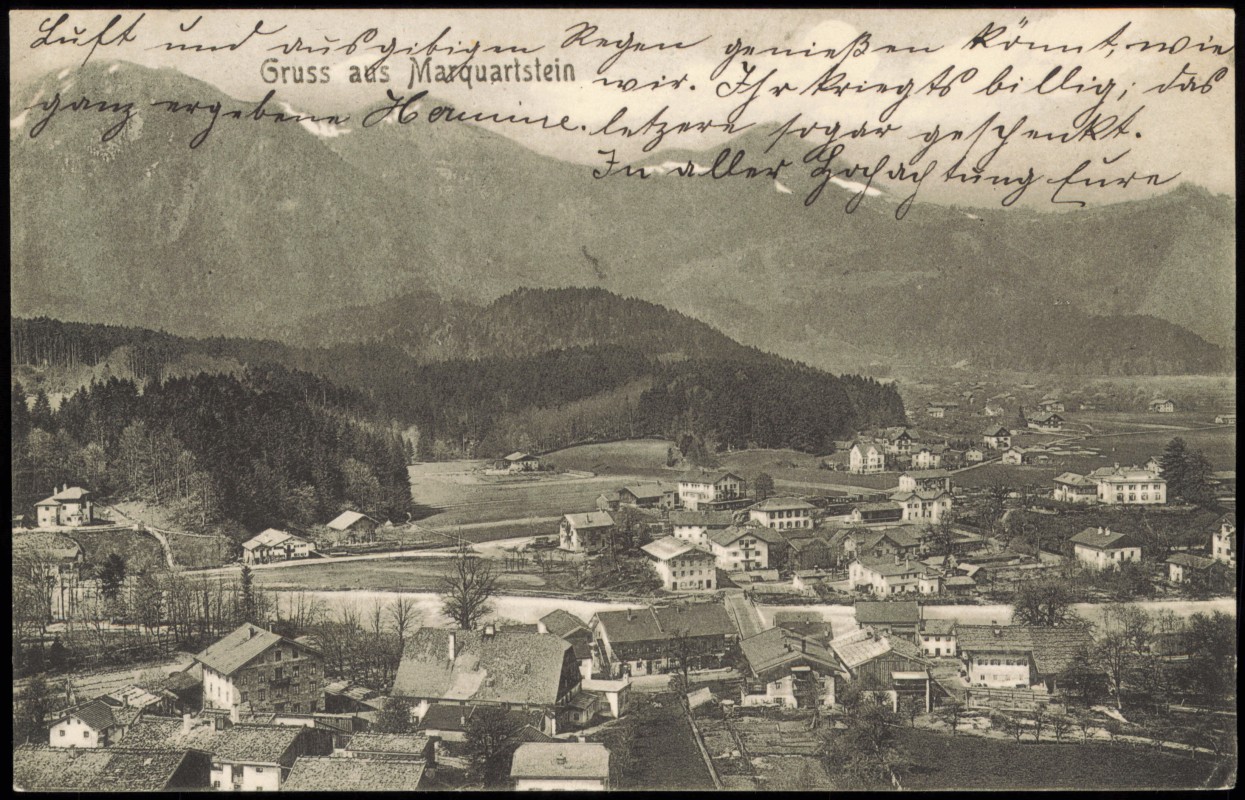 Luft und ausgibigen Regen genießen könnt, wie
Gruss aus Marquartstein
wir. Ihr kriegts billig; das
letzere sogar geschenkt.
In aller Hochachtung Eure
ganz ergebene